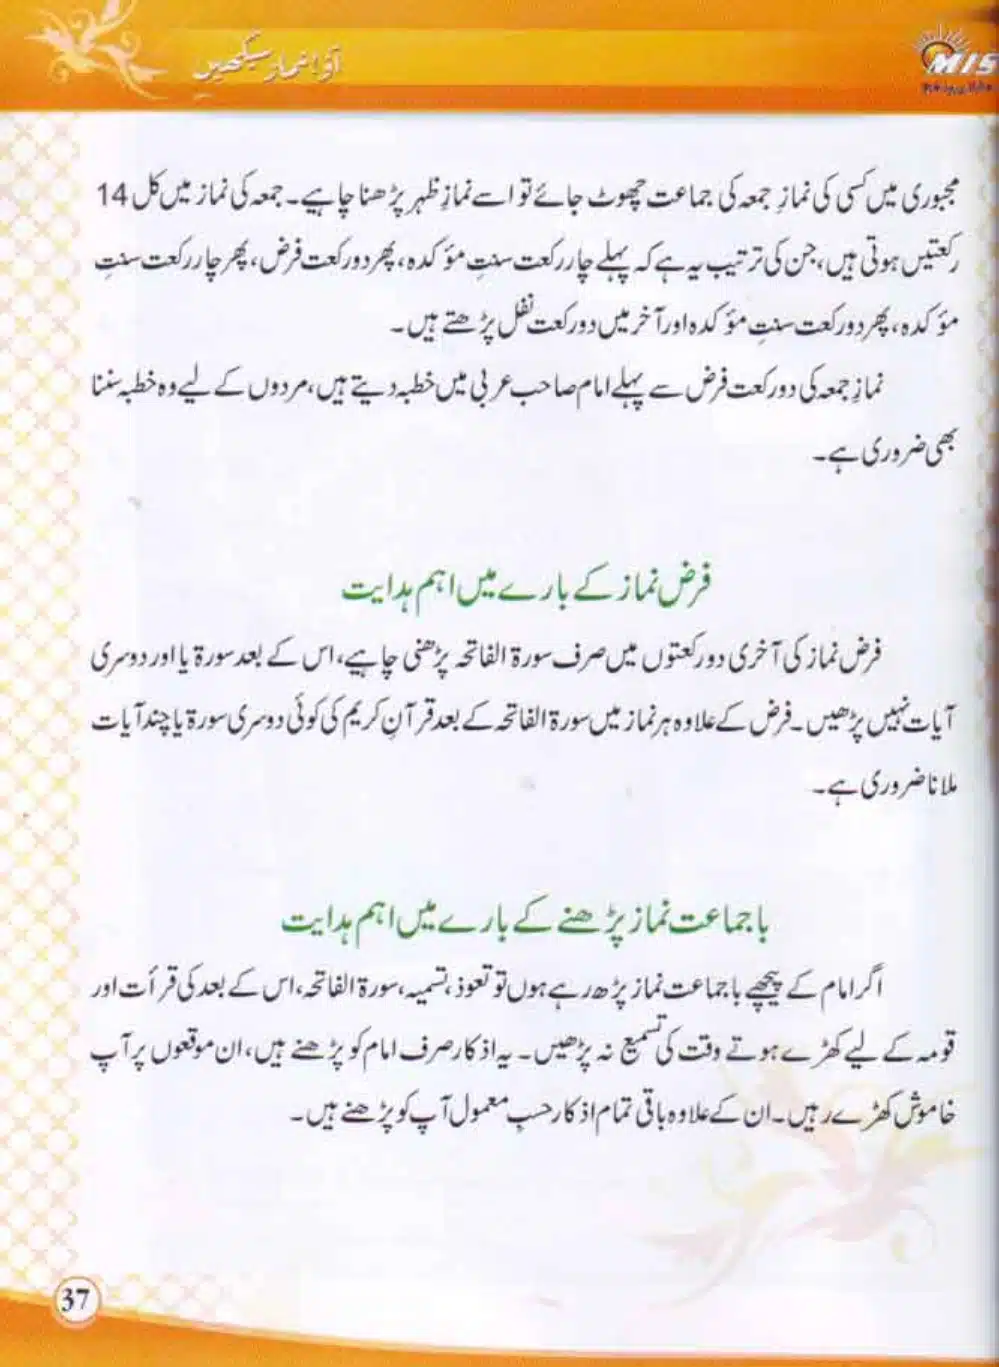 آؤ! نماز سیکھیں
MIS
مجبوری میں کسی کی نمازِ جمعہ کی جماعت چھوٹ جائے تو اسے نمازِ ظہر پڑھنا چاہیے۔ جمعہ کی نماز میں کل 14
رکعتیں ہوتی ہیں، جن کی ترتیب یہ ہے کہ پہلے چار رکعت سنتِ مؤکدہ، پھر دو رکعت فرض، پھر چار رکعت سنتِ
مؤکدہ، پھر دو رکعت سنتِ مؤکدہ اور آخر میں دو رکعت نفل پڑھتے ہیں۔
نمازِ جمعہ کی دو رکعت فرض سے پہلے امام صاحب عربی میں خطبہ دیتے ہیں، مردوں کے لیے وہ خطبہ سننا
بھی ضروری ہے۔
فرض نماز کے بارے میں اہم ہدایت
فرض نماز کی آخری دو رکعتوں میں صرف سورۃ الفاتحہ پڑھنی چاہیے، اس کے بعد سورۃ یا اور دوسری
آیات نہیں پڑھیں۔ فرض کے علاوہ ہر نماز میں سورۃ الفاتحہ کے بعد قرآنِ کریم کی کوئی دوسری سورۃ یا چند آیات
ملانا ضروری ہے۔
باجماعت نماز پڑھنے کے بارے میں اہم ہدایت
اگر امام کے پیچھے باجماعت نماز پڑھ رہے ہوں تو تعوذ، تسمیہ، سورۃ الفاتحہ، اس کے بعد کی قرأت اور
قومہ کے لیے کھڑے ہوتے وقت کی تسمیع نہ پڑھیں۔ یہ اذکار صرف امام کو پڑھنے ہیں، ان موقعوں پر آپ
خاموش کھڑے رہیں۔ ان کے علاوہ باقی تمام اذکار حسبِ معمول آپ کو پڑھنے ہیں۔
37